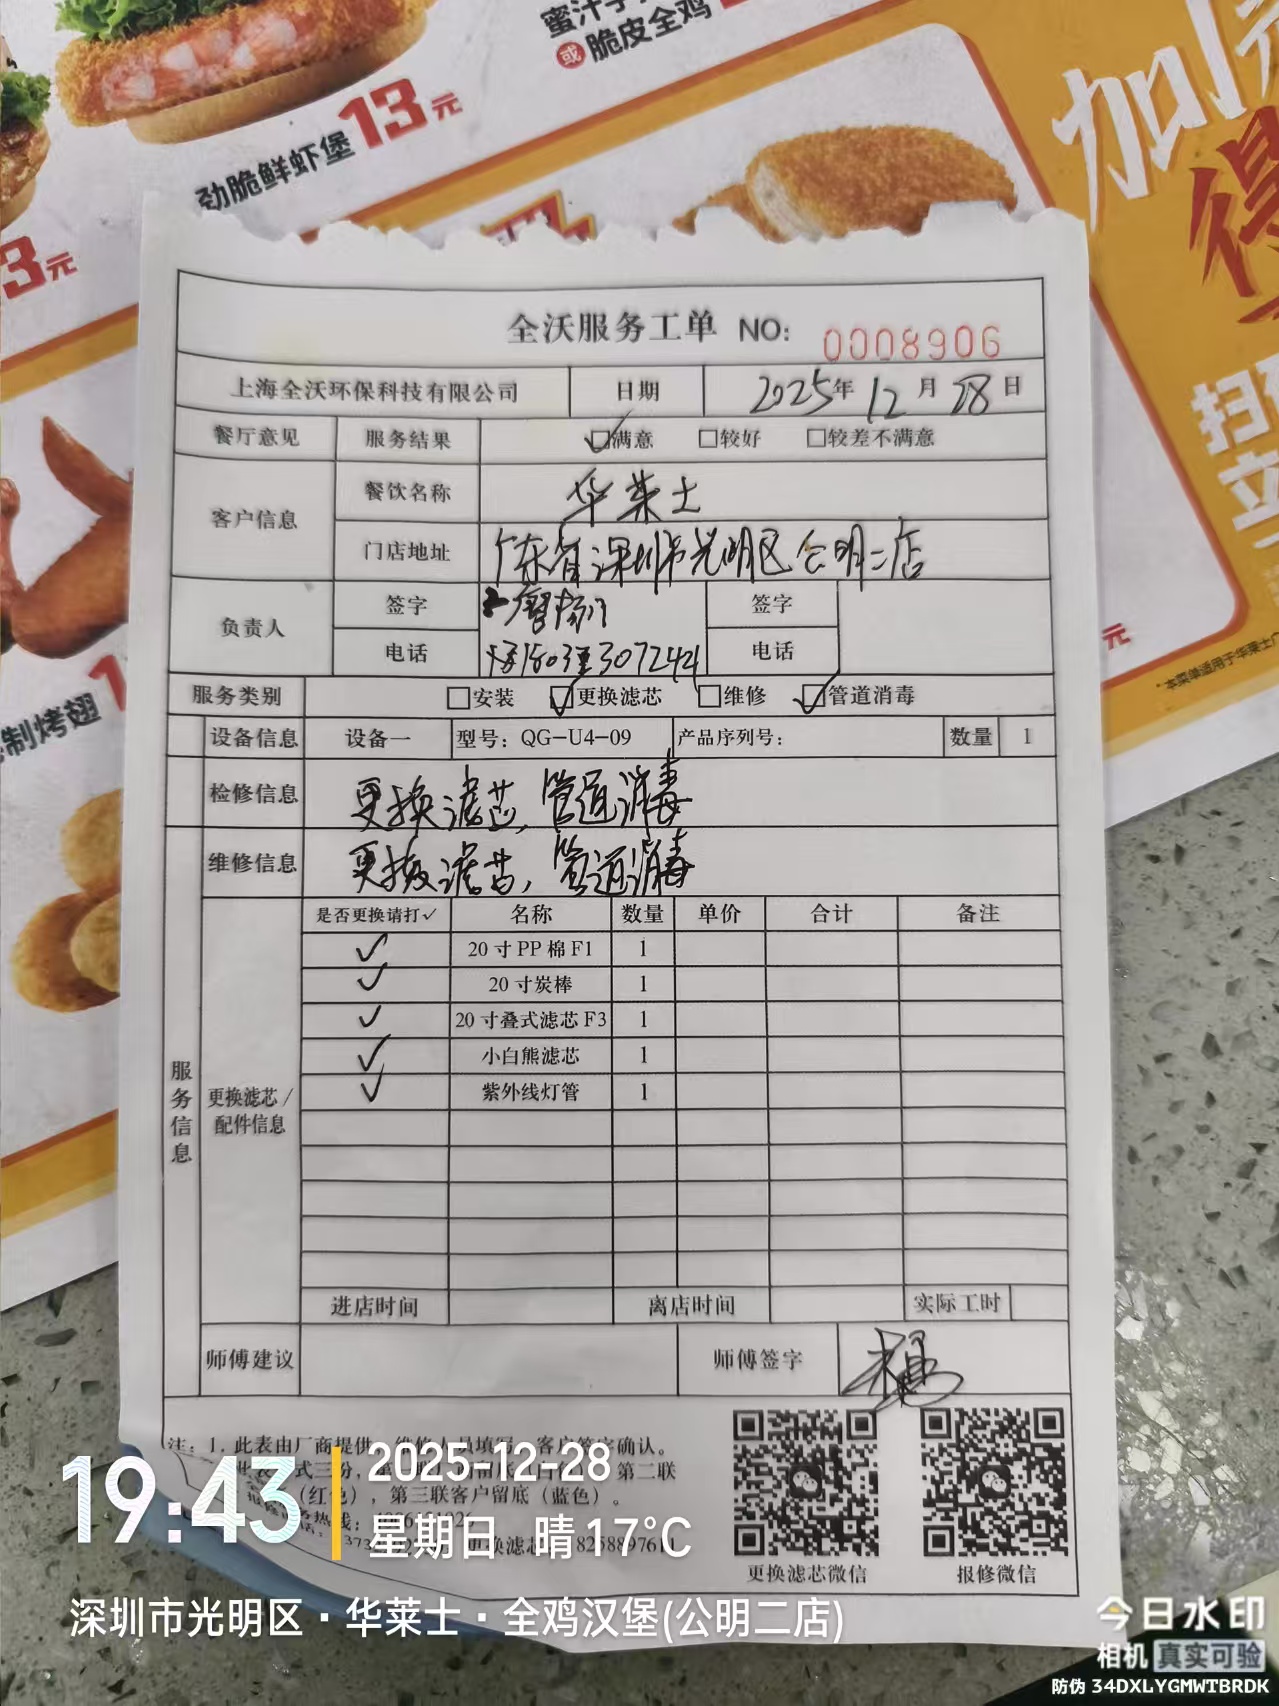 蜜汁手
或脆皮全鸡
劲脆鲜虾堡 13元
3元
加1元
得
扫码
立
元
制烤翅 1
全沃服务工单 NO: 0008906
上海全沃环保科技有限公司 日期 2025年12月28日
餐厅意见 服务结果 ☑满意 □较好 □较差不满意
客户信息 餐饮名称 华莱士
门店地址 广东省深圳市光明区公明二店
负责人 签字 签字
电话 电话
服务类别 □安装 ☑更换滤芯 □维修 ☑管道消毒
设备信息 设备一 型号: QG-U4-09 产品序列号: 数量 1
检修信息 更换滤芯,管道消毒
维修信息 更换滤芯,管道消毒
服务信息
更换滤芯/配件信息
是否更换请打✓ 名称 数量 单价 合计 备注
✓ 20寸PP棉F1 1
✓ 20寸炭棒 1
✓ 20寸叠式滤芯F3 1
✓ 小白熊滤芯 1
✓ 紫外线灯管 1
进店时间 离店时间 实际工时
师傅建议 师傅签字
注: 1. 此表由厂商提供,维修人员填写,客户签字确认。
第二联
(红色),第三联客户留底(蓝色)。
更换滤芯微信 报修微信
19:43
2025-12-28
星期日 晴 17°C
深圳市光明区·华莱士·全鸡汉堡(公明二店)
今日水印
相机 真实可验
防伪 34DXLYGMWTBRDK